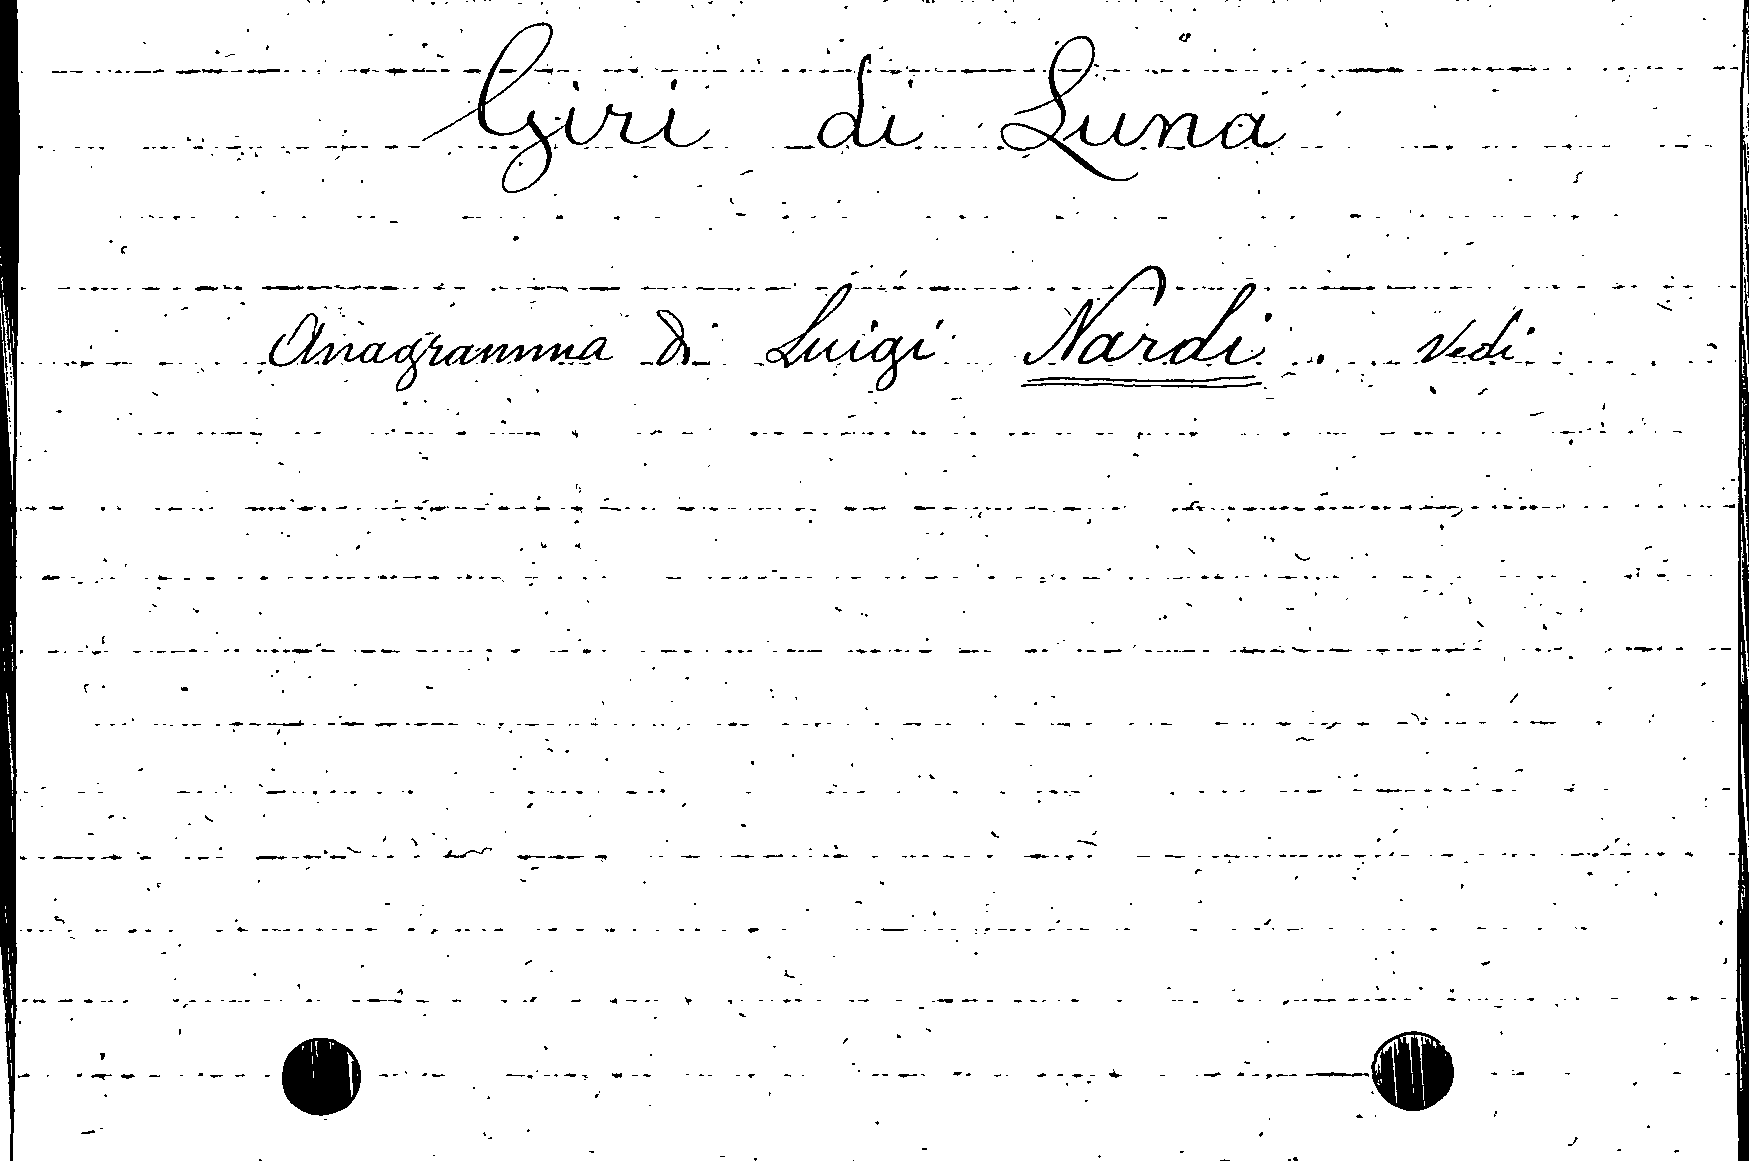 Giri di Luna
Anagramma di Luigi Nardi. Vedi